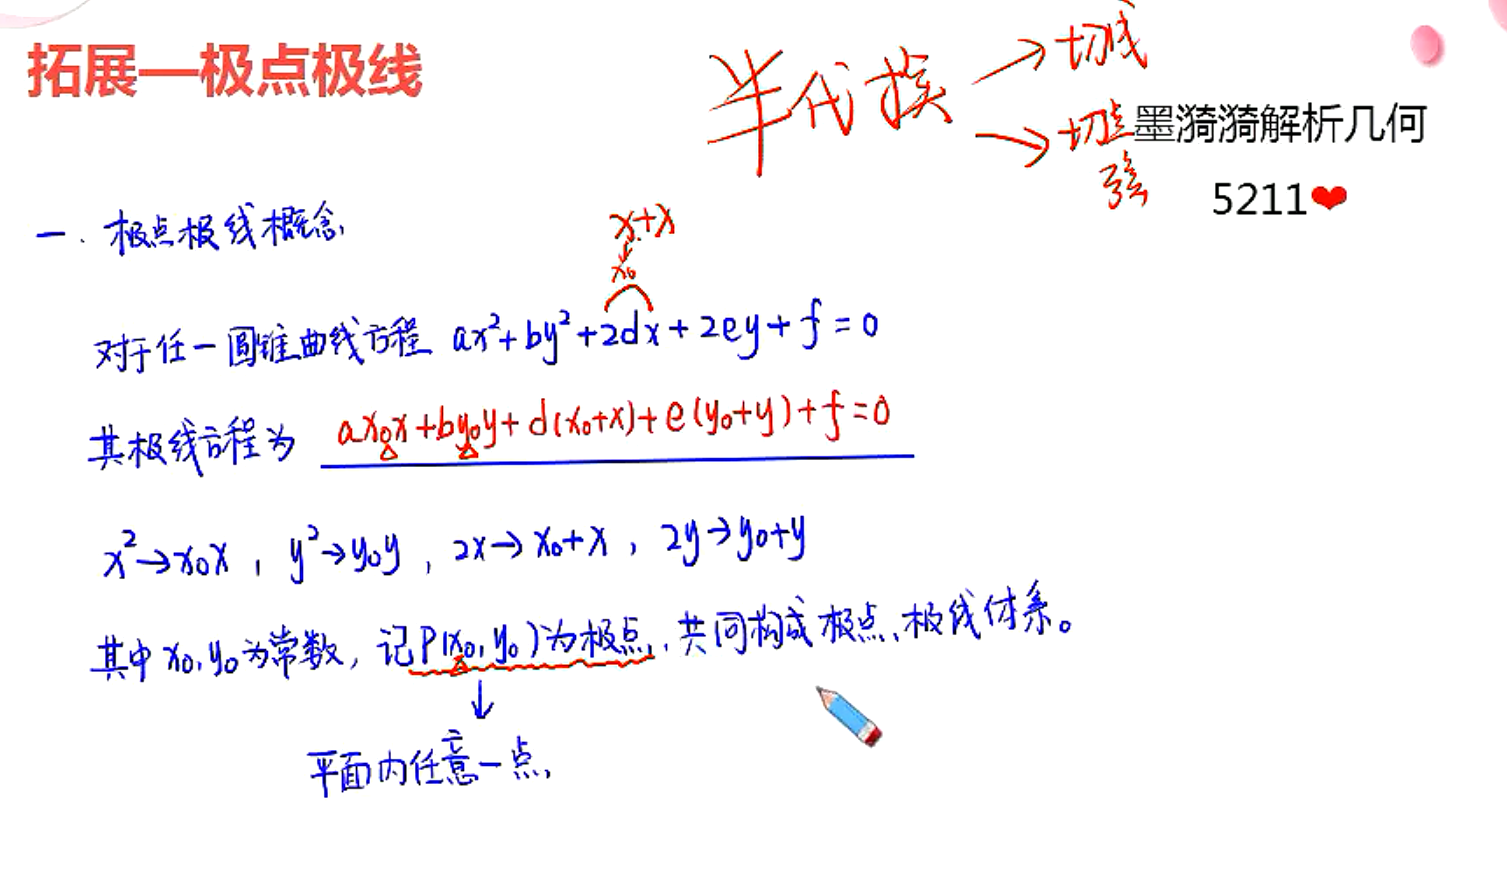 拓展—极点极线
半代换 → 切线
→ 切点弦
墨漪漪解析几何
5211❤
一. 极点极线概念
x+x
x₀
对于任一圆锥曲线方程 ax²+by²+2dx+2ey+f=0
其极线方程为 ax₀x+by₀y+d(x₀+x)+e(y₀+y)+f=0
x²→x₀x, y²→y₀y, 2x→x₀+x, 2y→y₀+y
其中x₀,y₀为常数, 记P(x₀,y₀)为极点, 共同构成极点、极线体系。
↓
平面内任意一点,